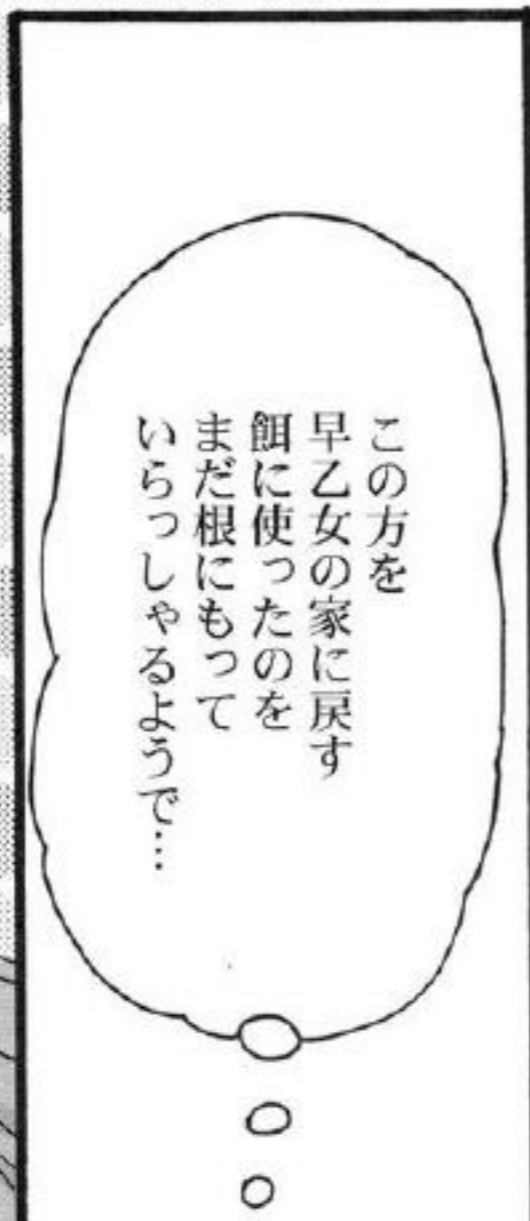 この方を
早乙女の家に戻す
餌に使ったのを
まだ根にもって
いらっしゃるようで…